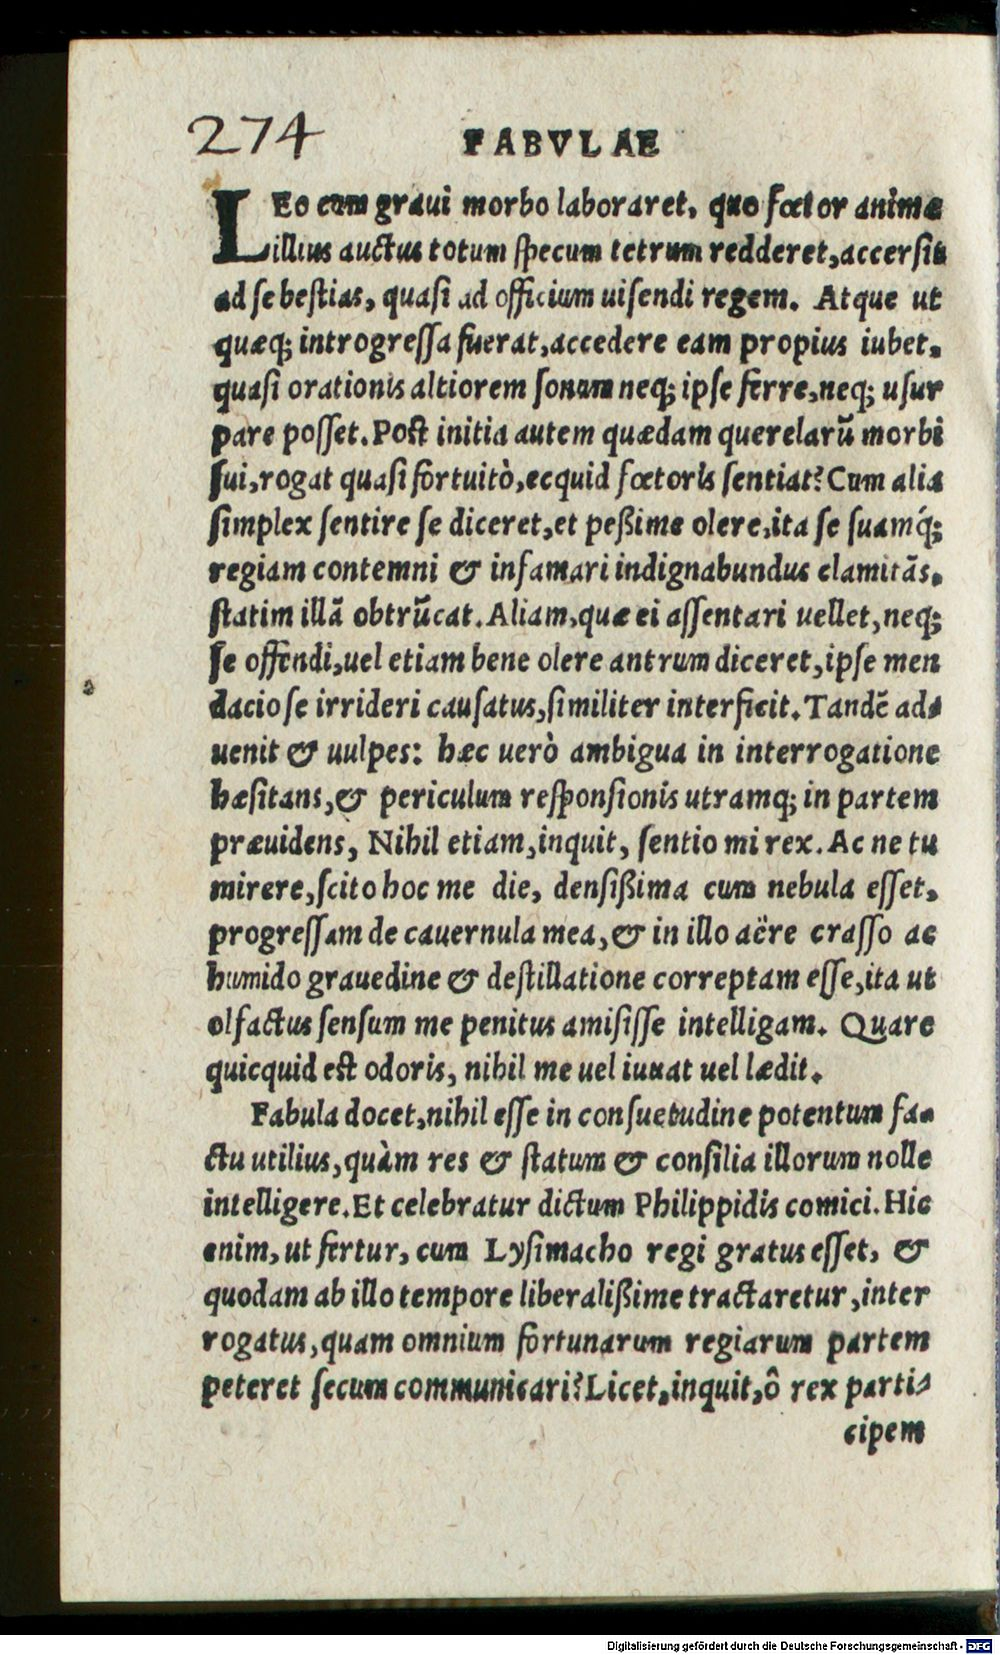 274
FABVLAE
LEo cum graui morbo laboraret, quo fœtor animæ
illius auctus totum specum tetrum redderet, accersit
ad se bestias, quasi ad officium uisendi regem. Atque ut
quæq; introgressa fuerat, accedere eam propius iubet,
quasi orationis altiorem sonum neq; ipse ferre, neq; usur
pare posset. Post initia autem quædam querelarū morbi
sui, rogat quasi fortuitò, ecquid fœtoris sentiat? Cum alia
simplex sentire se diceret, et peßime olere, ita se suamq́;
regiam contemni & infamari indignabundus clamitās,
statim illā obtrūcat. Aliam, quæ ei assentari uellet, neq;
se offendi, uel etiam bene olere antrum diceret, ipse men
dacio se irrideri causatus, similiter interficit. Tandē ad-
uenit & uulpes: hæc uerò ambigua in interrogatione
hæsitans, & periculum responsionis utramq; in partem
præuidens, Nihil etiam, inquit, sentio mi rex. Ac ne tu
mirere, scito hoc me die, densißima cum nebula esset,
progressam de cauernula mea, & in illo aëre crasso ac
humido grauedine & destillatione correptam esse, ita ut
olfactus sensum me penitus amisisse intelligam. Quare
quicquid est odoris, nihil me uel iuuat uel lædit.
Fabula docet, nihil esse in consuetudine potentum fa-
ctu utilius, quàm res & statum & consilia illorum nolle
intelligere. Et celebratur dictum Philippidis comici. Hic
enim, ut fertur, cum Lysimacho regi gratus esset, &
quodam ab illo tempore liberalißime tractaretur, inter
rogatus, quam omnium fortunarum regiarum partem
peteret secum communicari? Licet, inquit, ô rex parti-
cipem
Digitalisierung gefördert durch die Deutsche Forschungsgemeinschaft - DFG